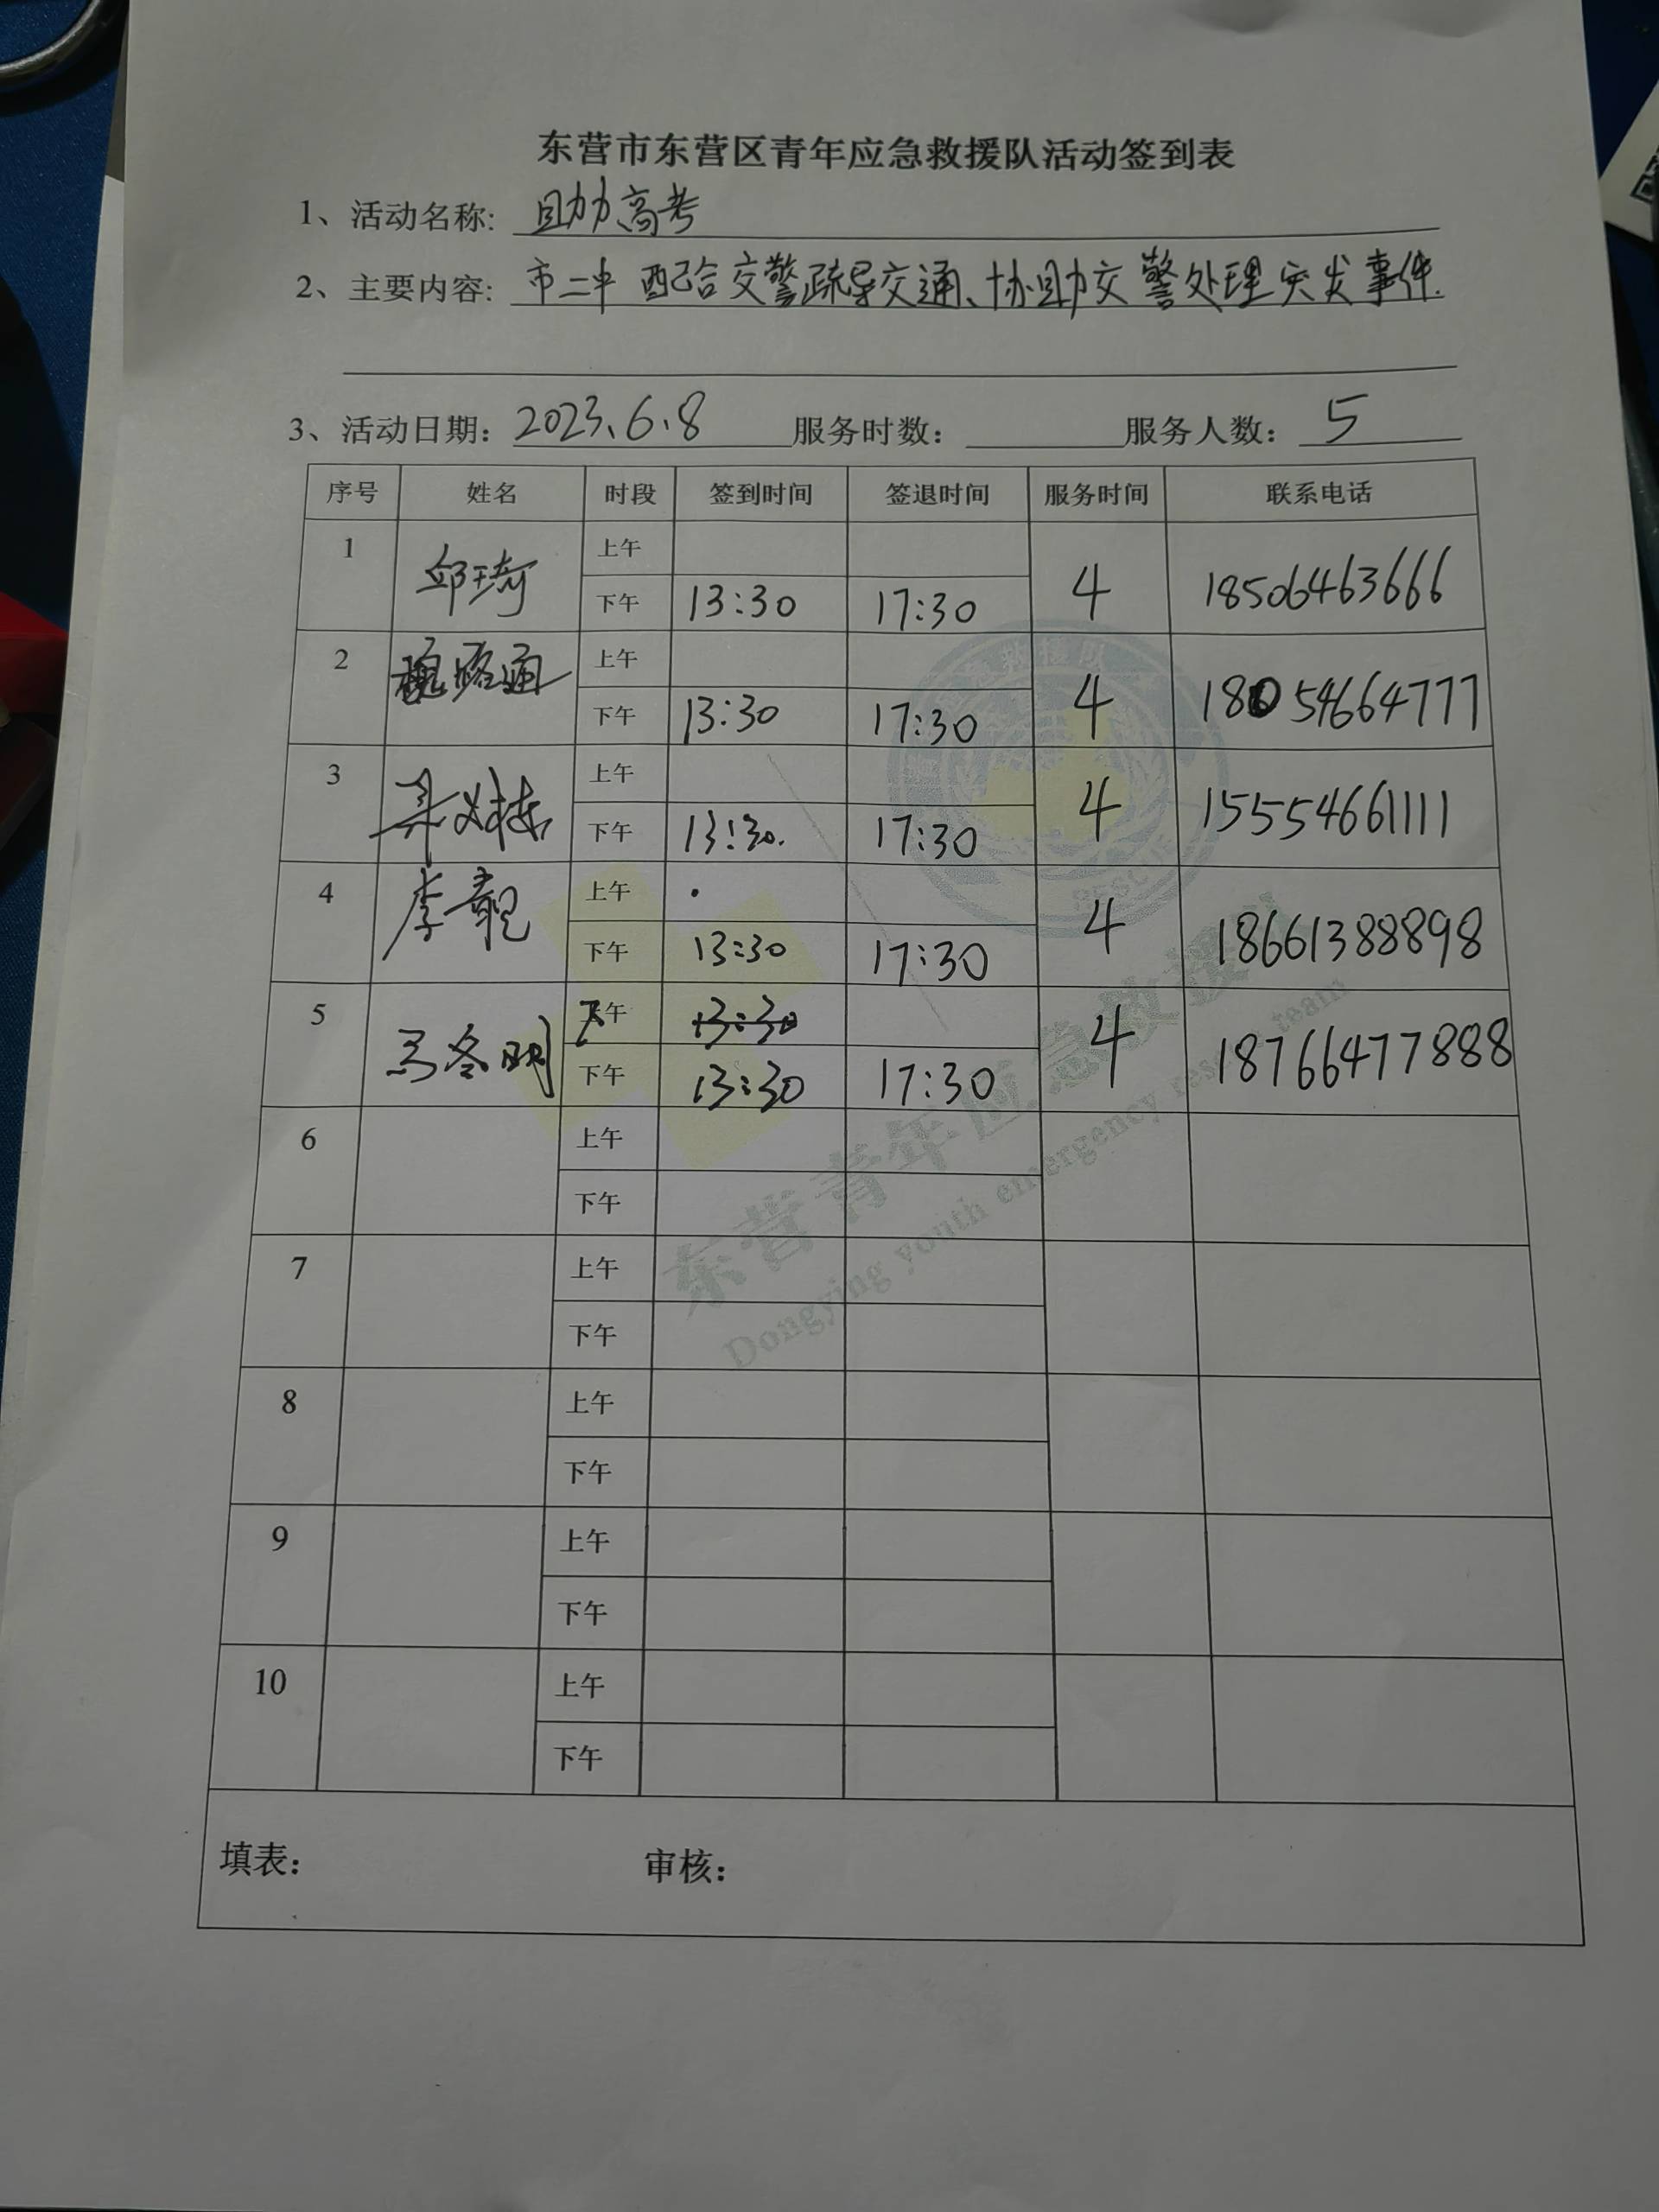 东营市东营区青年应急救援队活动签到表
1、活动名称: 助力高考
2、主要内容: 市二中 配合交警疏导交通、协助交警处理突发事件.
3、活动日期: 2023.6.8 服务时数: 服务人数: 5
序号 姓名 时段 签到时间 签退时间 服务时间 联系电话
1 邱琦 上午
下午 13:30 17:30 4 18506463666
2 路通 上午
下午 13:30 17:30 4 18054664777
3 上午
下午 13:30. 17:30 4 15554661111
4 李靓 上午
下午 13:30 17:30 4 18661388898
5 马冬明 下午 13:30
下午 13:30 17:30 4 18766477888
6 上午
下午
7 上午
下午
8 上午
下午
9 上午
下午
10 上午
下午
填表: 审核:
东营青年应急救援队
Dongying youth emergency rescue team